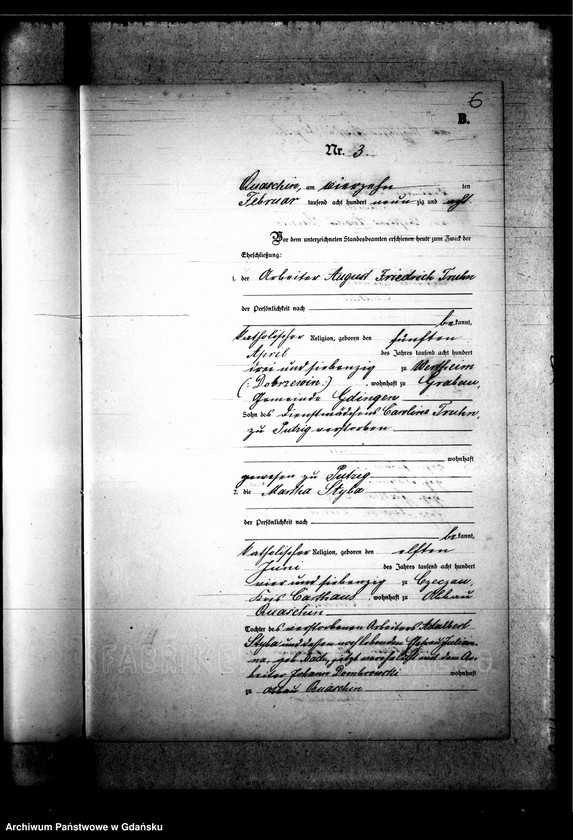 6
B.
Nr. 3.
Quaschin, am vierzehn ten
Februar tausend acht hundert neunzig und acht
Vor dem unterzeichneten Standesbeamten erschienen heute zum Zweck der
Eheschließung:
1. der Arbeiter August Friedrich Truhn
der Persönlichkeit nach
bekannt,
katholischer Religion, geboren den fünften
April des Jahres tausend acht hundert
drei und siebenzig zu Wertheim
(: Dobrzewin :), wohnhaft zu Grabau,
Gemeinde Gdingen
Sohn des Dienstmädchens Caroline Truhn,
zu Putzig verstorben
wohnhaft
gewesen zu Putzig
2. die Martha Styba
der Persönlichkeit nach
bekannt,
katholischer Religion, geboren den elften
Juni des Jahres tausend acht hundert
vier und siebenzig zu Czeczau,
Kreis Carthaus, wohnhaft zu Abbau
Quaschin
Tochter des verstorbenen Arbeiters Adalbert
Styba und dessen noch lebenden Ehefrau Julian-
na, geb. Bach, jetzt verehelicht mit dem Ar-
beiter Johann Dombrowski wohnhaft
zu Abbau Quaschin
Archiwum Państwowe w Gdańsku